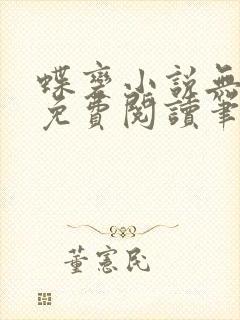 蝶變小説無
免費閱讀筆
董憲民